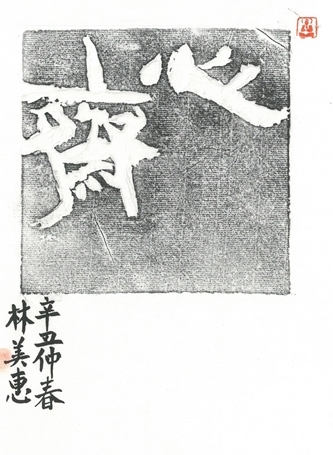 心齋
辛丑仲春
林美惠